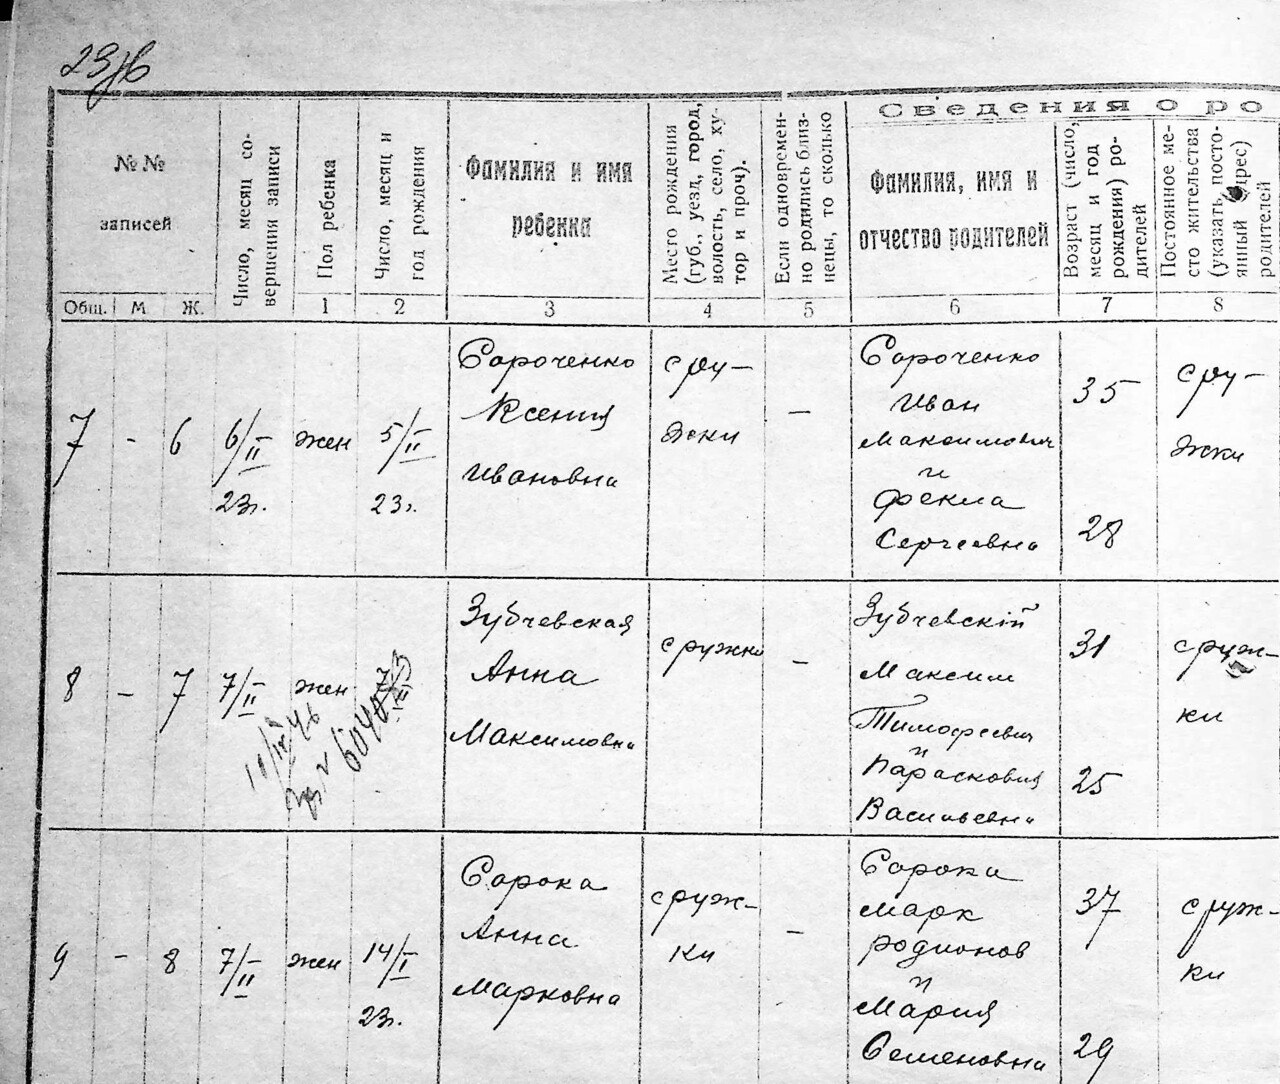 Сведения о ро
№№
записей
Число, месяц со-
вершения записи
Пол ребенка
Число, месяц и
год рождения
Фамилия и имя
ребенка
Место рождения
(губ., уезд, город,
волость, село, ху-
тор и проч).
Если одновремен-
но родились близ-
нецы, то сколько
Фамилия, имя и
отчество родителей
Возраст (число,
месяц и год
рождения) ро-
дителей
Постоянное ме-
сто жительства
(указать посто-
янный адрес)
родителей
Общ. М Ж. 1 2 3 4 5 6 7 8
7 - 6
6/II
23г.
жен
5/II
23г.
Сороченко
Ксения
Ивановна
сру-
жки
—
Сороченко
Иван
Максимович
и
Фекла
Сергеевна
35
28
сру-
жки
8 - 7
7/II
жен
Зубчевская
Анна
Максимовна
сружки
—
Зубчевскій
Максим
Тимофеевич
и
Парасковия
Васильевна
31
25
сруж-
ки
9 - 8
7/II
жен
14/I
23г.
Сорока
Анна
Марковна
сруж-
ки
—
Сорока
Марк
родионов
и
Мария
Семеновна
37
29
сруж-
ки